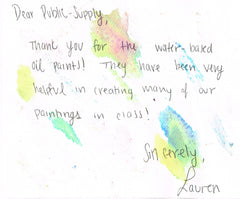 Dear Public-Supply,
Thank you for the water-based
oil paints! They have been very
helpful in creating many of our
paintings in class!
Sincerely,
Lauren